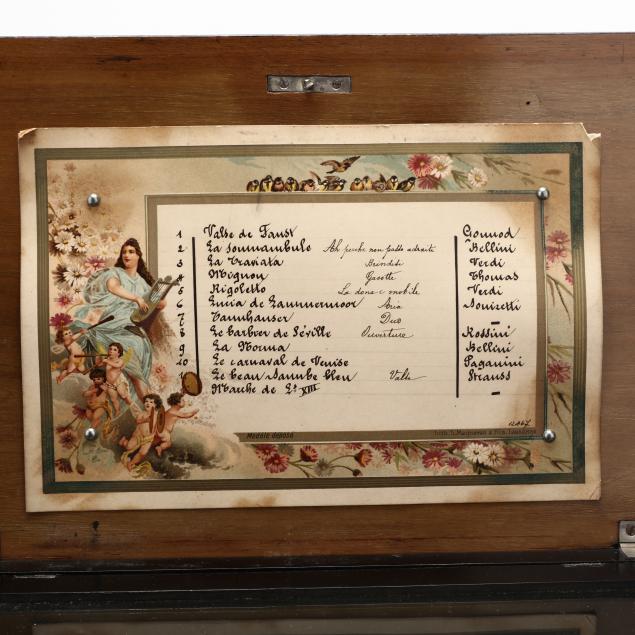 1 Valse de Faust Gounod
2 La somnambule Ah perche non posso odiarte Bellini
3 La Traviata Brindisi Verdi
4 Mignon Gavotte Thomas
5 Rigoletto La dona e mobile Verdi
6 Lucia de Lammermoor Aria Donizetti
7 Tannhauser Duo –
8 Le barbier de Séville Ouverture Rossini
9 La Norma Bellini
10 Le carnaval de Venise Paganini
Le beau Danube bleu Valse Strauss
Marche de Ls XIII –
Modèle déposé